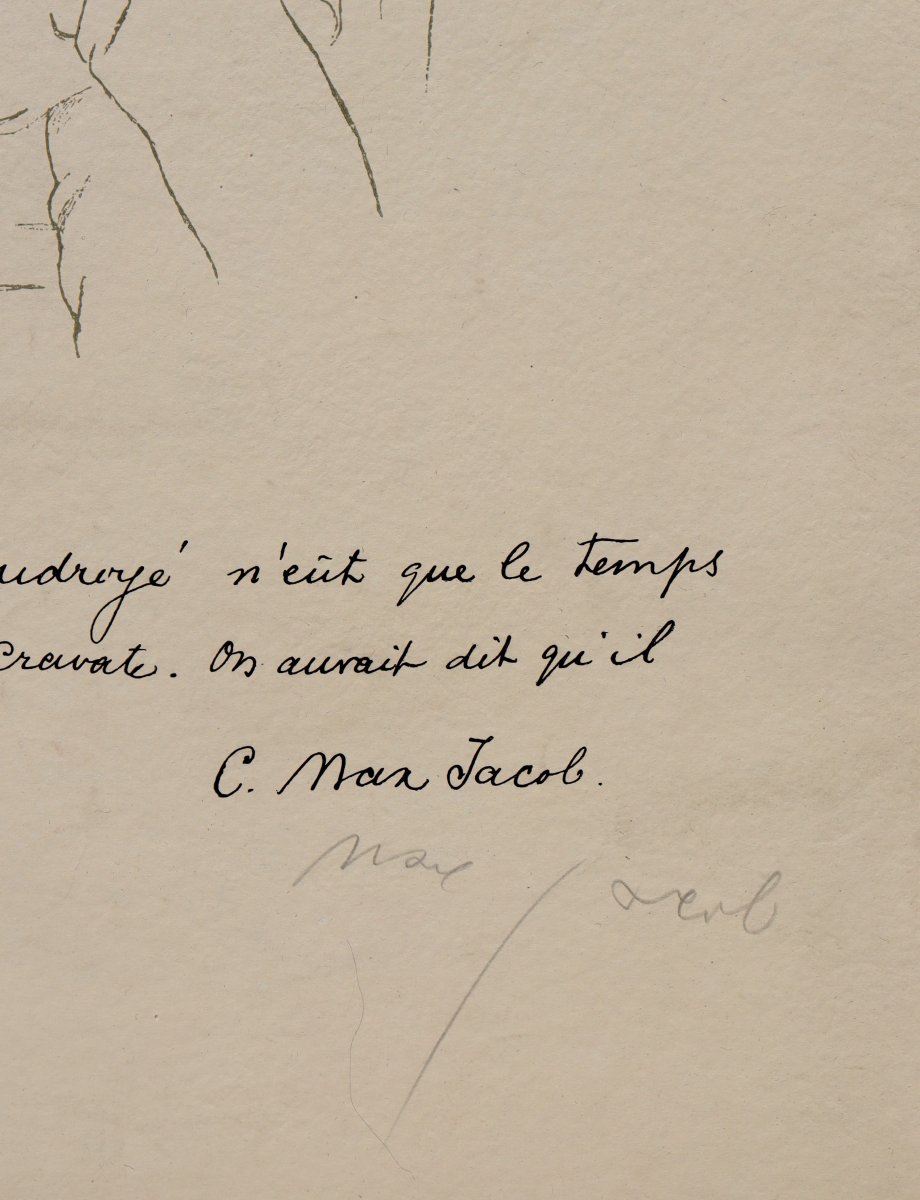 udroyé n'eût que le temps
Cravate. On aurait dit qu'il
C. Max Jacob.
Max Jacob